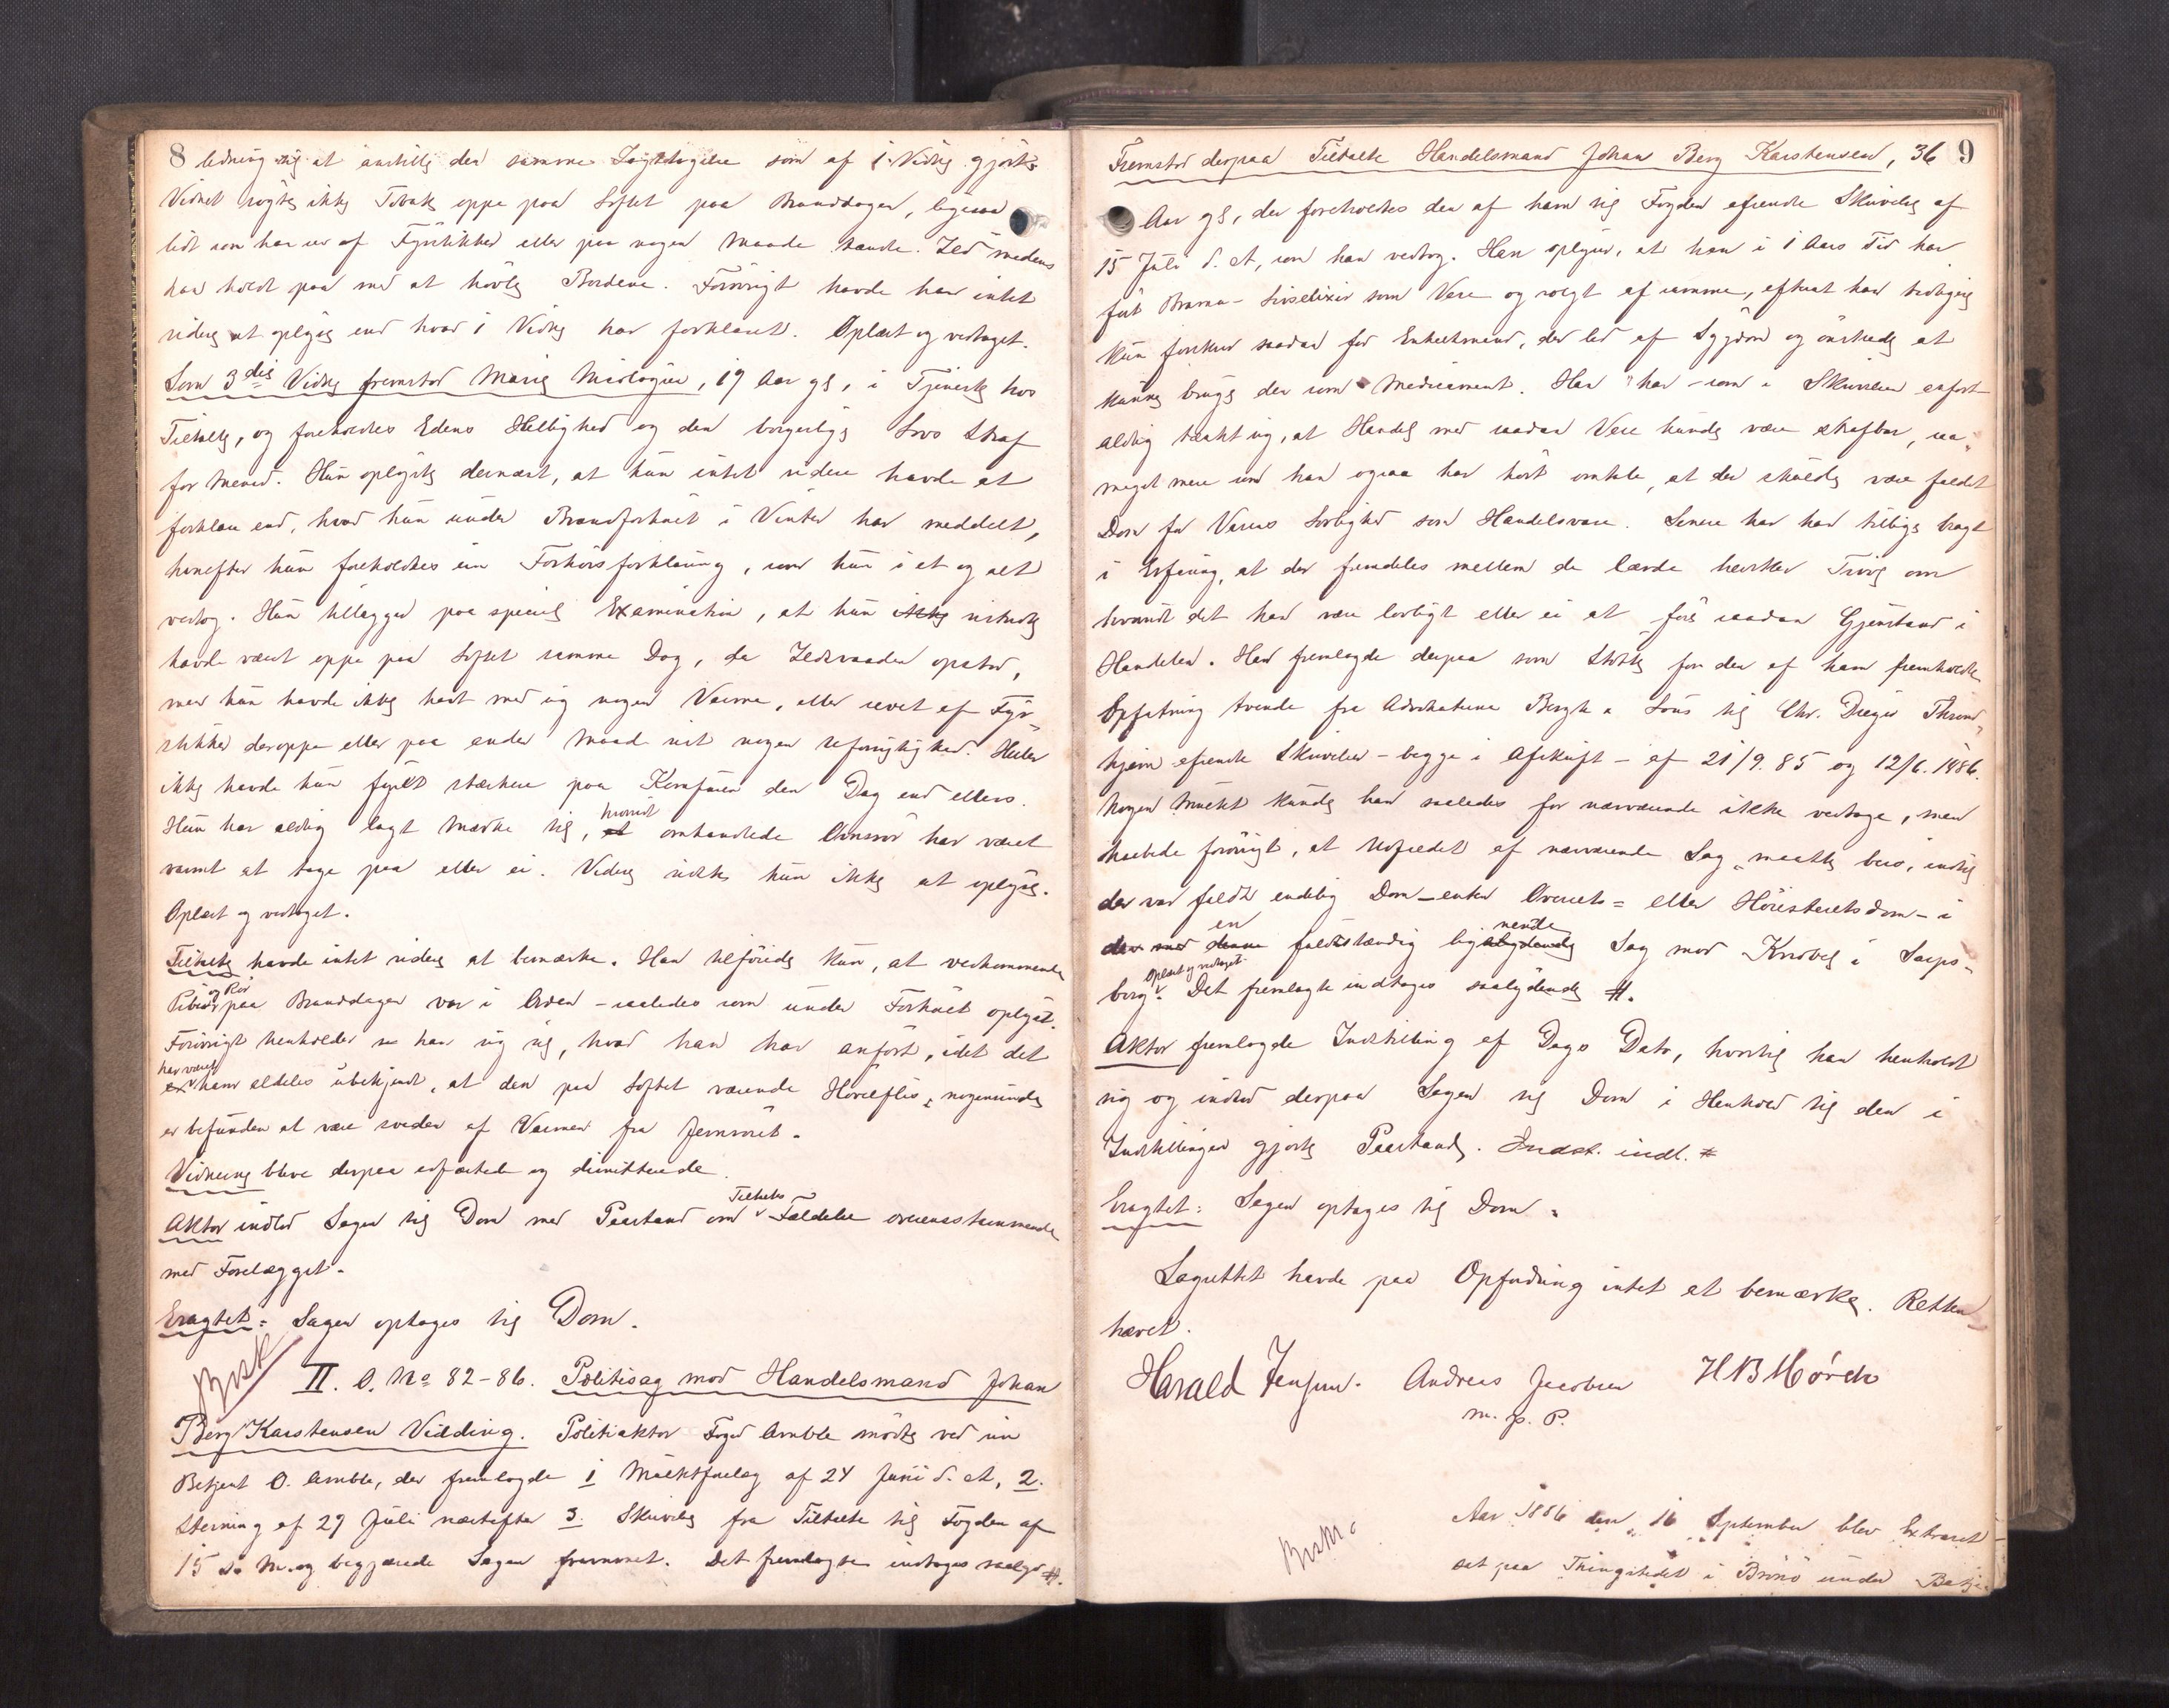 8 ledning til at anstille den samme Iagttagelse som af 1. Vidne gjort.
Vidnet røgte ikke Tobak oppe paa Loftet paa Branddagen, ligesaa
lidt som han rev af Fyrstikker eller paa nogen Maade tændte Ild medens
han holdt paa med at høvle Bordene. Forøvrigt havde han intet
videre at oplyse end hvad 1 Vidne har forklaret. Oplæst og vedtaget.
Som 3die Vidne fremstod Marie, 19 Aar gl, i Tjeneste hos
Tiltalte, og foreholdtes Edens Hellighed og den borgerlige Lovs Straf
for Mened. Hun oplyste dernæst, at hun intet videre havde at
forklare end, hvad hun under Brandforhøret i Vinter har meddelt,
hvorefter hun foreholdtes sin Forhørsforklaring, som hun i et og alt
vedtog. Hun tillægger paa speciel Examination, at hun ikke vistnok
havde været oppe paa Loftet samme Dag, da Ildsvaaden opstod,
men hun havde ikke havt med sig nogen Varme, eller revet af Fyr-
stikker deroppe eller paa anden Maad vist nogen Uforsigtighed. Heller
ikke havde hun fyret stærkere paa Komfuren den Dag end ellers.
Hun har aldrig lagt Mærke til, at hvorvidt omhandlede Ovnsrør har været
varmt at tage paa eller ei. Videre vidste hun ikke at oplyse.
Oplæst og vedtaget.
Tiltalte havde intet videre at bemærke. Han tilføiede kun, at vedkommende
Pibe og Rør paa Branddagen var i Orden - saaledes som under Forhøret oplyst.
Forøvrigt henholder han sig til, hvad han har anført, idet det
har været ham aldeles ubekjendt, at den paa Loftet værende Høvelflis nogensinde
er befunden at være sveden af Varmen fra Jernrøret.
Vidnerne bleve derpaa edfæstede og dimitterede.
Aktor indlod Sagen til Dom med Paastand om Tiltaltes Fældelse overensstemmende
med Forelægget.
Eragtet: Sagen optages til Dom.
Besk
II. O. No 82-86. Politisag mod Handelsmand Johan
Berg Karstensen Vilding. Politiaktor Foged Amble mødte ved sin
Betjent O. Amble, der fremlagde 1 Mulktforelæg af 24 Juni d. A, 2.
Stevning af 29 Juli næstefter 3. Skrivelse fra Tiltalte til Fogden af
15 s. M. og begjærede Sagen fremmet. Det fremlagte indtages saalyd #.
9
Fremstod derpaa Tiltalte Handelsmand Johan Berg Karstensen, 36
Aar gl, der foreholdtes den af ham til Fogden afsendte Skrivelse af
15 Juli d. A, som han vedtog. Han oplyser, at han i 1 Aars Tid har
ført Brama-Livselixir som Vare og solgt af samme, efterat han tidligere
kun forskrev saadan for Enkeltmand, der led af Sygdom og ønskede at
kunne bruge den som Medicament. Han har - som i Skrivelsen anført -
aldrig tænkt sig, at Handel med saadan Vare kunde være strafbar, saa-
meget mere som han ogsaa har hørt omtale, at der skulde være faldet
Dom for Varens Lovlighed som Handelsvare. Senere har han tillige bragt
i Erfaring, at der fremdeles mellem de lærde hersker Tvivl om
hvorvidt det kan være lovligt eller ei at føre saadan Gjenstand i
Handelen. Han fremlagde derpaa som Støtte for den af ham fremholdte
Opfatning tvende fra Advokaterne Bergh &amp; Lous til Chr. Thrond-
hjem afsendte Skrivelser - begge i Afskrift - af 21/9. 85 og 12/6. 1886.
Nogen Mulkt kunde han saaledes for nærværende ikke vedtage, men
haabede forøvrigt, at Udfaldet af nærværende Sag maatte bero, indtil
der var faldt endelig Dom - enten Overrets- eller Høiesteretsdom - i
den med denne en fuldstændig lignende Sag mod i Sarps-
borg. Oplæst og vedtaget. Det fremlagte indtages saalydende #.
Aktor fremlagde Indstilling af Dags Dato, hvortil han henholdt
sig og indlod derpaa Sagen til Dom i Henhold til den i
Indstillingen gjorte Paastand. Indst. indt. #
Eragtet: Sagen optages til Dom.
Lagrettet havde paa Opfordring intet at bemærke. Retten
hævet.
Harald Jensen. Andreas Jacobsen H B Mørch
m. p. P.
Beskr.
Aar 1886 den 16 September blev Extraret
sat paa Thingstedet i Brønø under Betje-